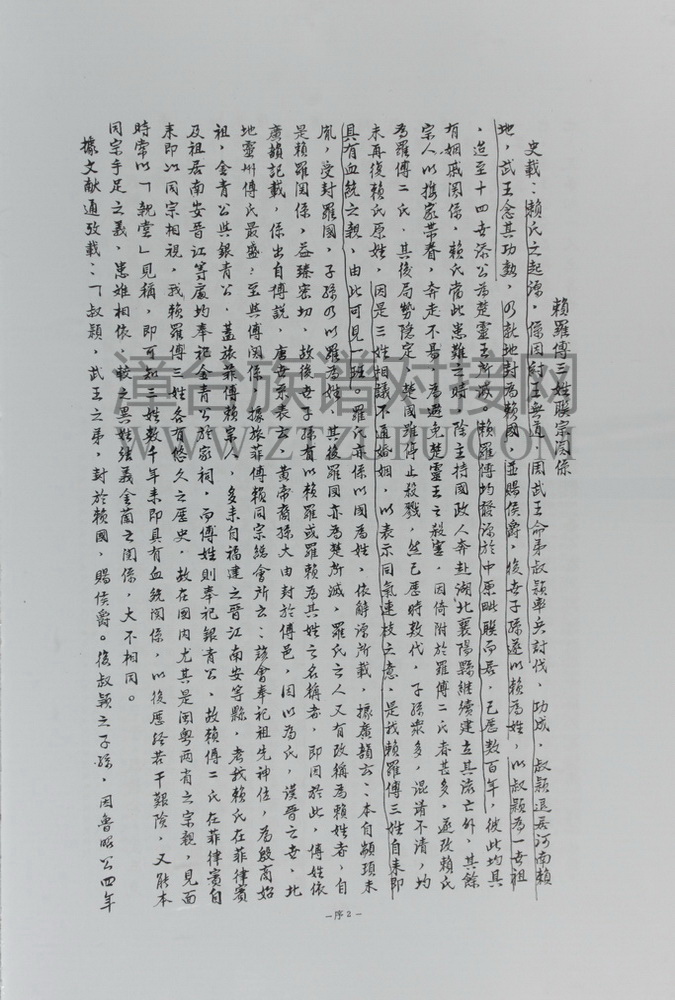 賴羅傅三姓聯宗関係
史載：賴氏之起源，係因紂王無道，周武王命弟叔穎率兵討伐，功成，叔穎退居河南賴
地，武王念其功勳，乃就地封為賴國，並賜侯爵，後世子孫遂以賴為姓，以叔穎為一世祖
，迨至十四世添公為楚靈王所滅。賴羅傅均發源於中原毗聯而居，已歷數百年，彼此均具
有姻戚関係，賴氏當此患難之時，除主持國政人奔赴湖北襄陽縣繼續建立其流亡外，其餘
宗人以攜家帶眷，奔走不易，為避免楚靈王之殺害，因倚附於羅傅二氏者甚多，遂改賴氏
為羅傅二氏．其後局勢隐定，楚國雖停止殺戮，然已歷時数代，子孫衆多，混淆不清，均
未再復賴氏原姓，因是三姓相議不通婚姻，以表示同氣連枝之意，是我賴羅傅三姓自来即
具有血統之親，由此可見一班，羅氏亦係以國為姓，依解源所載，據廣韻云：本自顓頊末
胤，受封羅國，子孫乃以羅為姓，其後羅国亦為楚所滅，羅氏之人又有改稱為賴姓者，自
是賴羅関係，益臻密切，故後世子孫有以賴羅或羅賴為其姓之名稱者，即因於此，傅姓依
廣韻記載，係出自傅說，唐世系表云：黄帝裔孫大由封於傅邑，因以為氏，漢晉之世，北
地靈州傅氏最盛：至與傅関係，據旅菲傅賴同宗總會所云：該會奉祀祖先神位，為殷商始
祖，金青公與銀青公，蓋旅菲傅賴宗人，多来自福建之晉江南安等縣，考我賴氏在菲律賓
及祖居南安晉江等處均奉祀金青公於家祠，而傅姓則奉祀銀青公，故賴傅二氏在菲律賓自
来即以同宗相視，我賴羅傅三姓各有悠久之歷史，故在國内尤其是闽粤两省之宗親，見面
時常以「親堂」見稱，即可知三姓数千年来即具有血統関係，以後歷经若干艱險，又能本
同宗手足之義，患难相依，較之異姓结義金蘭之関係，大不相同。
據文献通攷載：「叔穎，武王之弟，封於賴國，賜侯爵。後叔穎之子孫，因魯昭公四年
-序2-
漳台族谱对接网
WWW.ZTZUPU.COM